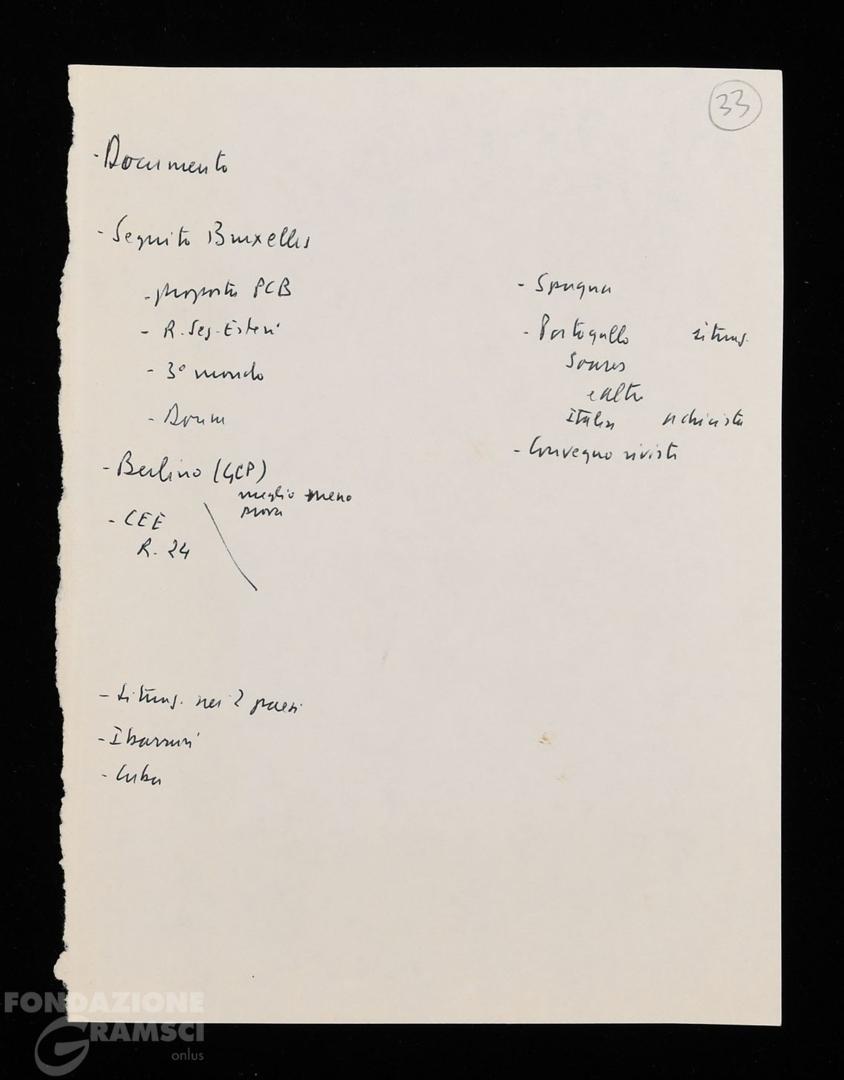 33
- Documento
- Seguito Bruxelles
- proposta PCB
- R. Seg. Esteri
- 3° mondo
- Berlino (GCP)
meglio meno
- CEE
R. 24
- Situaz. nei 2 paesi
- Ibarruri
- Cuba
- Spagna
- Portogallo situaz.
Soares
e altri
Italia
- Convegno riviste
FONDAZIONE
GRAMSCI
onlus